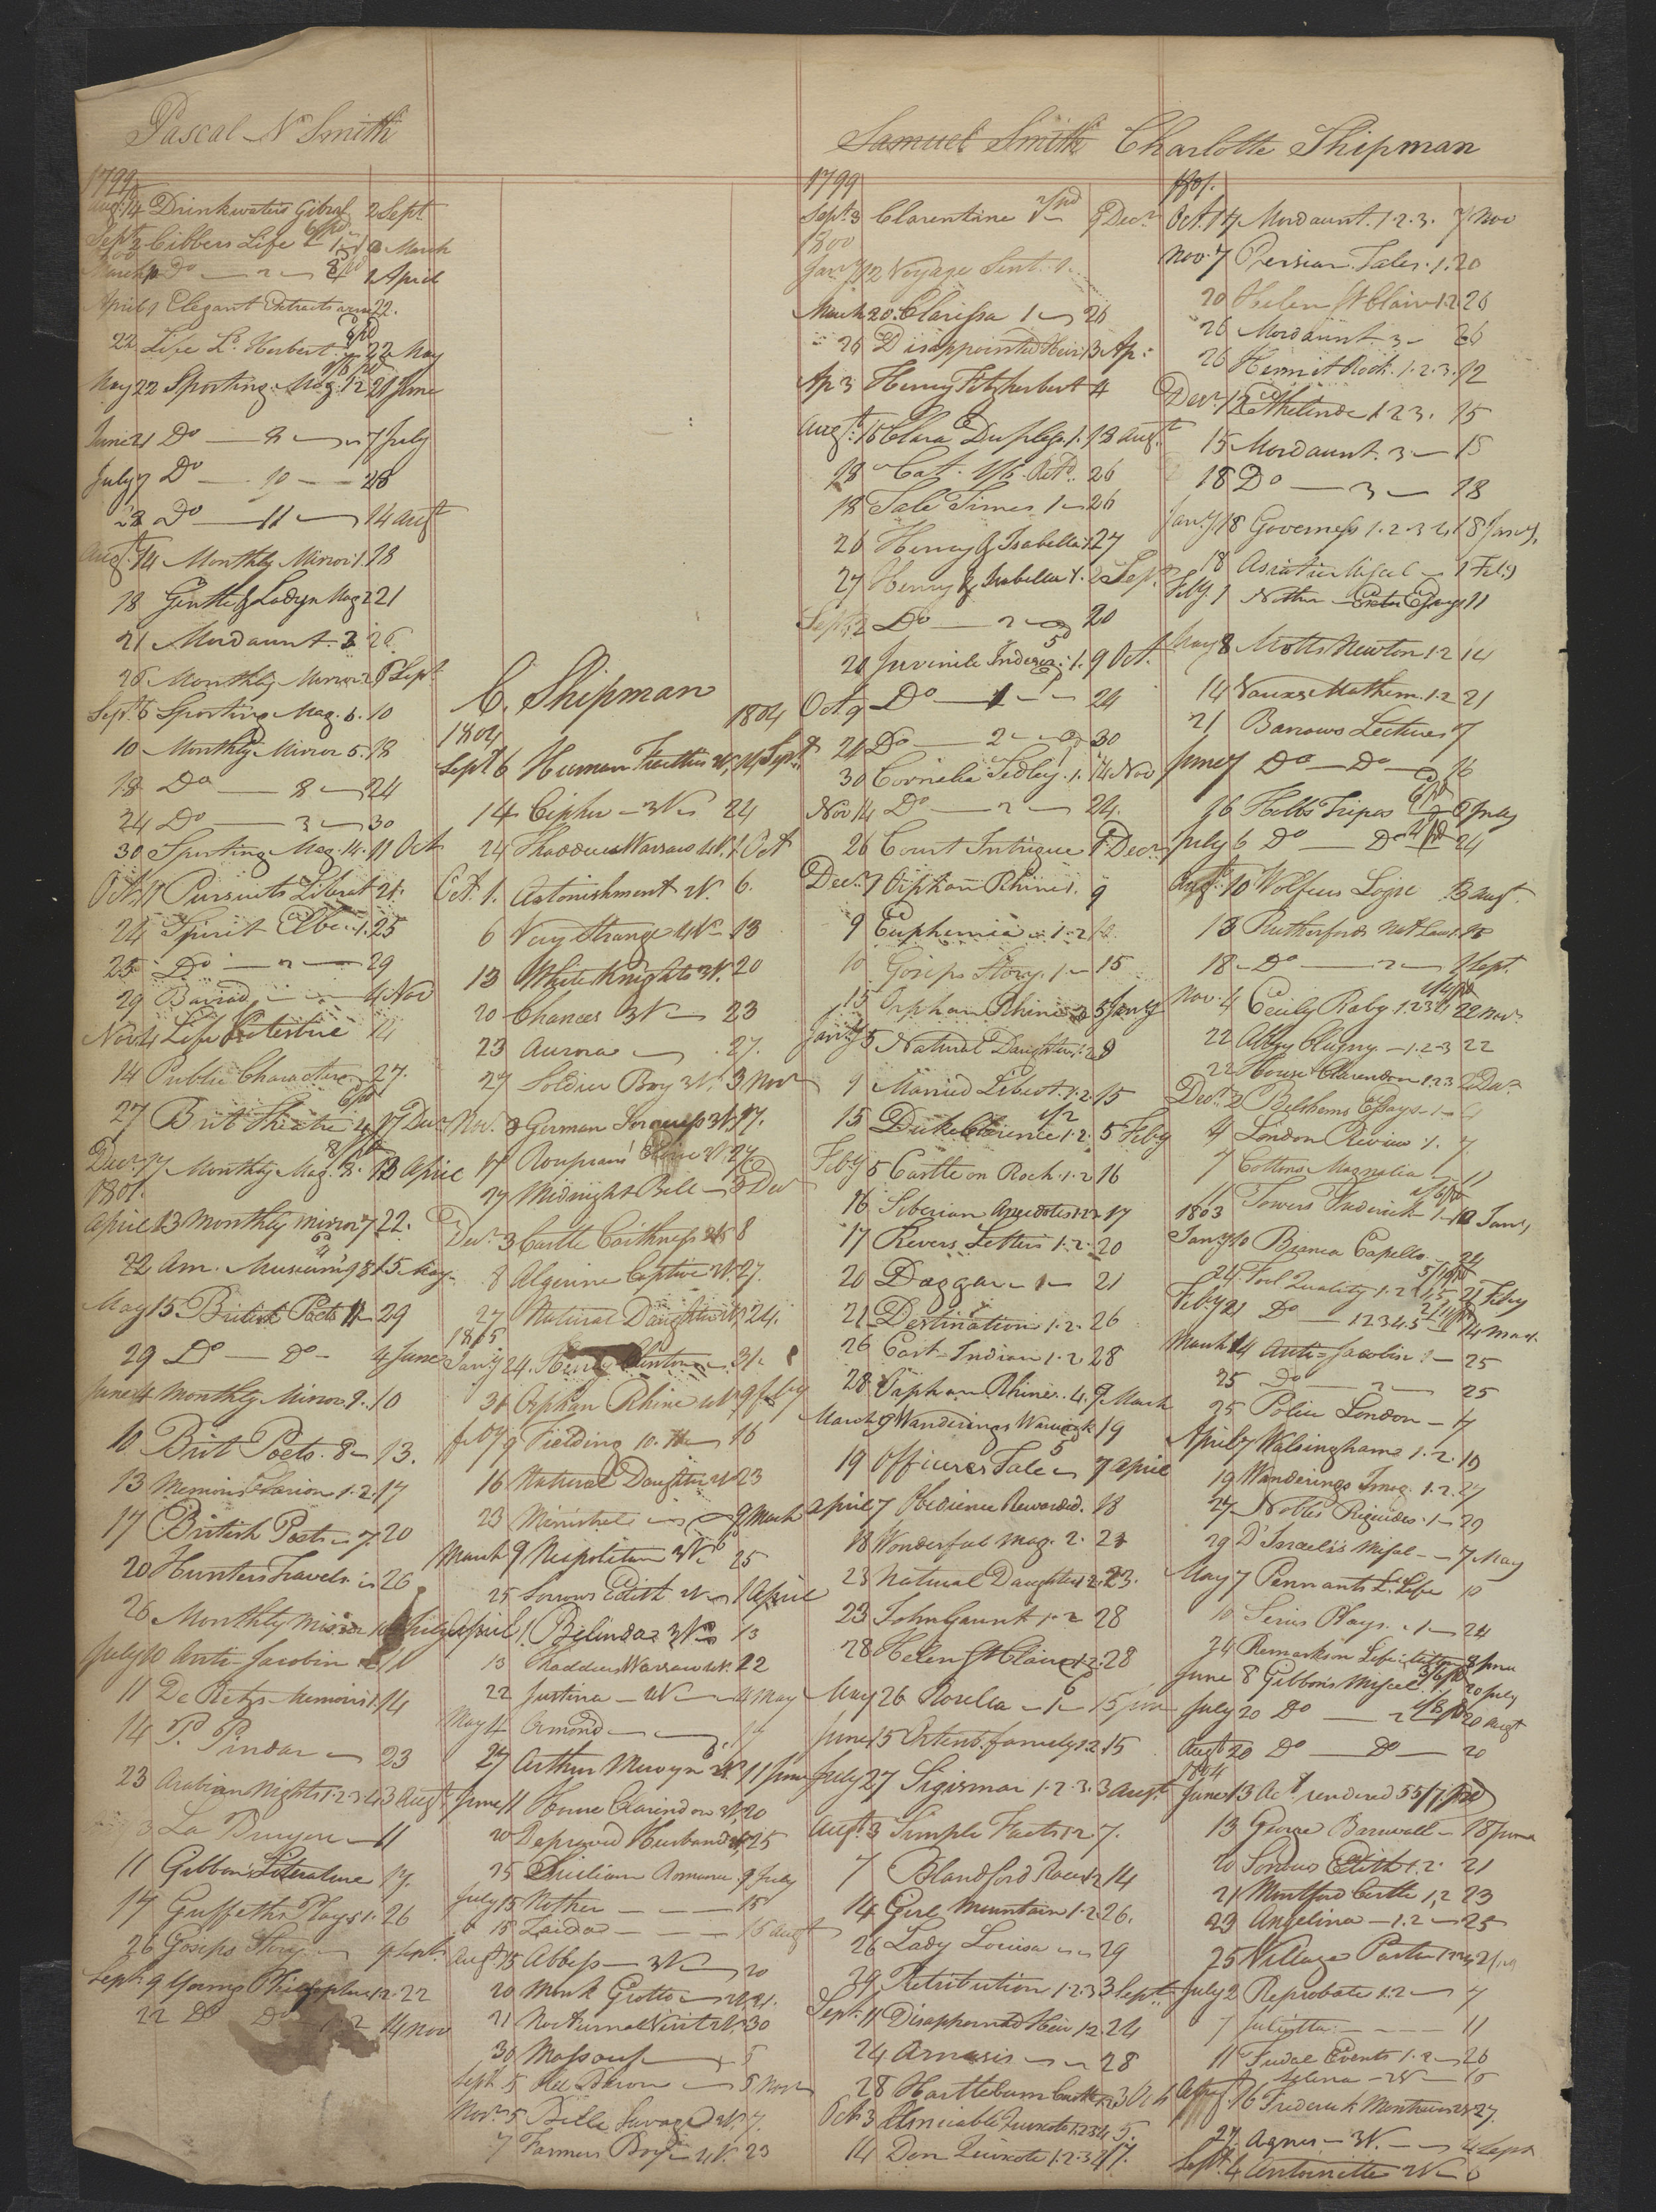 Pascal N Smith
1799
Augt 14 Drinkwaters Gibral 2 Sept
Sept 2 Cibbers Life 1 March
March Do 2 1 April
April 1 Elegant Extracts 22.
22 Life Ld Herbert 22 May
May 22 Sporting Mag. 1.2 21 June
June 21 Do 7 July
July 7 Do 10 28
28 Do 11 14 Augt
Augt 14 Monthly Mirror 1. 18
18 Gentle & Ladys Mag 2 21
21 Mordaunt 3 26
26 Monthly Mirror 2 6 Sept
Sept 6 Sporting Mag. 6. 10
10 Monthly Mirror 5. 18
18 Do 8 24
24 Do 3 30
30 Sporting Mag. 14. 11 Oct
Oct. 11 Pursuits Literat 21.
24 Spirit Elbe 1. 25
25 Do 2 29
29 4 Nov
Nov 4 Life 14
14 Public Character 27.
27 Brit Theatre 4 17 Decr
Decr 17 Monthly Mag. 3. 13 April
1801.
April 13 Monthly Mirror 7 22.
22 Am. Museum 15 May
May 15. British Poets 11 29
29 Do Do 4 June
June 4 Monthly Mirror 9. 10
10 Brit Poets. 8 13.
13 Memoirs 1.2. 17
17 British Poets 7. 20
20 Hunters Travels 26
26 Monthly Mirror 10 July
July 10 Anti Jacobin 11
11 De Retzs Memoirs 1. 14
14 P. Pindar 23
23 Arabian Nights 1.2.3.4 3 Augt
3 La Bruyere 11
11 Gibbon's Literature 17.
17 Griffeths Plays 1. 26
26 Gossips Story 9 Sept
Sept. 9 Young Philosopher 1.2. 22
22 Do Do 1.2 14 Nov
C. Shipman
1804 1804
Sept 6 Human Frailties 14 Sept
14 Cipher 3V 24
24 Thaddeus Warsaw 4V. 1 Oct
Oct. 1. Astonishment 2V. 6.
6 Very Strange 4V 13
13 White Knights 3V. 20
20 Chances 3V 23
23 Aurora 27.
27 Soldier Boy 3V. 3 Novr
Nov. 3 German Sorceress 3V 17.
17 27.
27 Midnight Bell 3 Decr
Decr 3 Castle Caithness 2V 8
8 Algerine Captive 2V. 27.
27 Natural Daughter 2V 24.
1805
Jany 24. Henry Clinton 31.
31 Orphan Rhine 4V 9 feby
feby 9 Fielding 10. 16
16 Natural Daughter 2V 23
23 Minstrel 9 March
March 9 Neapolitan 3V. 25
25 Sorrows Edith 2V 1 April
April 1. Belinda 3V 13
13 Thaddeus Warsaw 4V. 22
22 Justina 2V 4 May
May 4 Ormond 17
27 Arthur Mervyn 2V. 11 June
June 11 House Clarendon 3V. 20
20 Depraved Husband 2V. 25
25 Sicilian Romance 9 July
July 15 Nother 15
15 Zaida 15 Augt
Augt 15 Abbess 3V. 20
20 Monk Grotto 2V. 21.
21 Nocturnal Visit 4V. 30
30 Massouf 5
Sept. 5 Red Baron 5 Novr
Novr 5. Belle Savage 2V. 7.
7 Farmers Boy 4V. 23
Samuel Smith
1799
Sept. 3 Clarentine 9 Decr
1800
Jany 12 Voyage Sent. 1.
March 20. Clarissa 1 26
26 Disappointed Heir 1 3 Ap:
Ap 3 Henry Fitzherbert 4
Augt: 15 Clara Duplesis. 1. 18 Augt.
18 Cat. 26
18 Tale Times 1 26
26 Henry & Isabella 1. 27
27 Henry & Isabella 1. 2 Sepr
Sept. 2 Do 2 20
20 Juvenile Indescr. 1. 9 Oct.
Oct. 9 Do 1 24
24 Do 2 30
30 Cornelia Sedley. 1. 14 Nov
Nov 14 Do 2 24.
26 Court Intrigue 7 Decr
Decr 7 Orphan Rhine 1. 9
9 Euphemia 1.2
10 Gossips Story. 1 15
15 Orphan Rhine 2 5 Jany
Jany 5 Natural Daughter 1.2 9
9 Married Libert. 1.2. 15
15 Duke Clarence 1.2. 5 Feby
Feby 5 Castle on Rock. 1.2 16
16 Siberian Anecdotes 1.2.3 17
17 Revers Letters 1.2. 20
20 Daggar 1 21
21 Destination 1.2. 26
26 East-Indian 1.2 28
28 Orphan Rhine. 4. 9 March
March 9 Wanderings Warwick 19
19 Officers Tale 7 April
April 7 Obedience Rewarded. 18
18 Wonderful Mag. 2. 23
23 Natural Daughter 1.2. 23.
23 John Gaunt 1.2 28
28 Helen St Claire 1.2. 28
May 26 Rosella 1 15 June
June 15 Ortenb. family 1.2. 15
July 27 Sigismar 1.2.3. 3 Augt.
Augt. 3 Simple Facts 1.2 7.
7 Blandford Races 1.2 14
14 Girl Mountain 1.2. 26.
26 Lady Louisa 29
29 Retribution 1.2.3 3 Sept.
Sept. 11 Disappointed Heir 1.2. 24
24 Amasis 28
28 Hartlebourn Castle 1.2 3 Oct
Oct. 3 Amicable Quixote 1.2.3.4. 5.
14 Don Quixote 1.2.3.4 17.
Charlotte Shipman
1801.
Oct. 17 Mordaunt. 1.2.3. 7 Nov
Nov. 7 Persian Tales. 1. 20
20 Helen St Clair 1.2 26
26 Mordaunt 3 26
26 Hermit Rock. 1.2.3. 12
Decr. 12 Ethelinde 1.2.3. 15
15 Mordaunt. 3 15
18 Do 3 18
Jany 18 Governess 1.2.3.4. 18 Jany.
18 Asiatic Miscel 1 Feby
Feby 1 Essays 11
May 8 Motts Newton 1.2 14
14 Vauxs Mathem. 1.2 21
21 Barrows Lectures 7
June 7 Do Do 16
16 Hells Tripos 6 July
July 6 Do Do 24
Augt. 10 Wolfius Logic 13 Augt.
13 Rutherfords Nat Law 1. 18
18 Do 2 1 Sept.
Nov. 4 Cecily Raby 1.2.3.4 22 Novr
22 Abby Clugny 1.2.3 22
22 House Clarendon 1.2.3 2 Decr
Decr 2 Belshams Essays 1
4 London Review 1. 7.
7 Cottons Magnalia 11
11 Towers Frederick 1 10 Jany
1803
Jany 10 Bianca Capello 24
24 Fool Quality 1.2 21 Feby
Feby 21 Do 1.2.3.4.5 14 Mar.
March 14 Anti-Jacobin 1 25
25 Do 2 25
25 Police London 7
April 7 Walsingham 1.2. 19
19 Wanderings Imag. 1.2. 27
27 Nobles 1 29
29 D'Israeli's Miscel 7 May
May 7 Pennants L. Life 10
10 Series Plays. 1 24
24 Remarks on Life 8 June
June 8 Gibbons Miscel. 1 20 July
July 20 Do 2 20 Augt
Augt 20 Do Do 20
1804
June 13 Act rendered 55/7 pd
13 George Barnwell 18 June
20 Sorrows Edith 1.2. 21
21 Montford Castle 1.2 23
23 Angelina 1.2 25
25 Village Pastor 1.2.3
July 2 Reprobate 1.2 7
7 Julietta 11
11 Fudal Events 1.2 26
Selena 2V 16
Augt. 16 Frederick Montreux 2V 27.
27. Agnes 3V. 4 Sept.
Sept. 4 Antoinette 2V 6